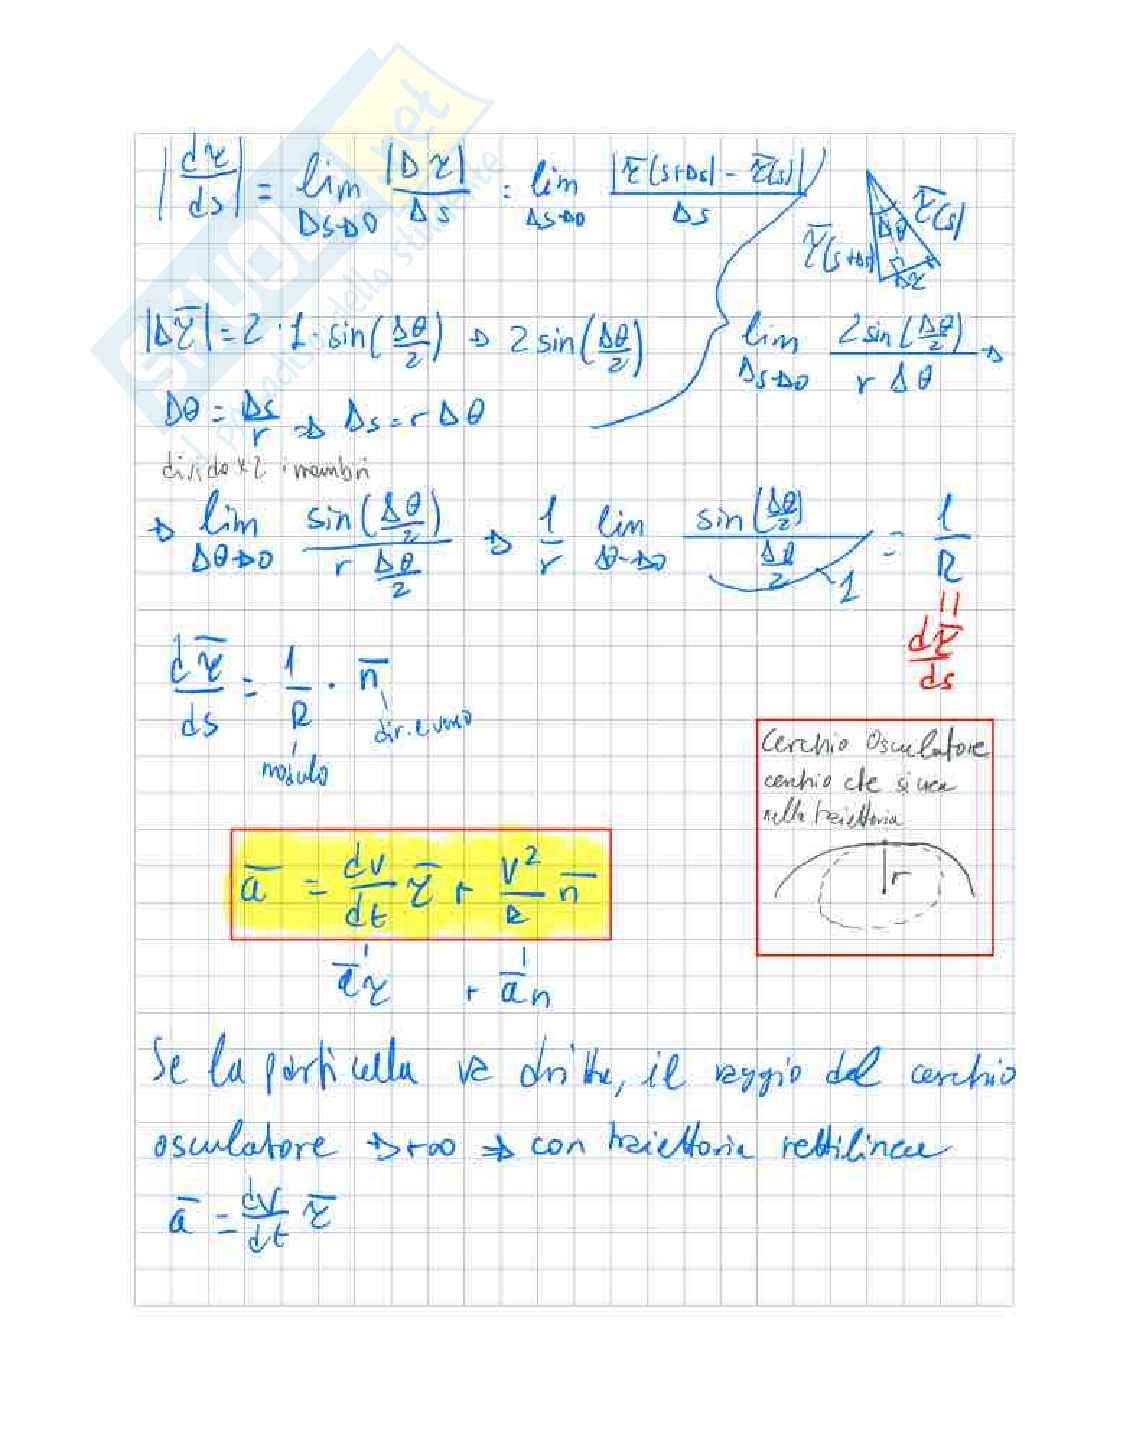 |dτ/ds| = lim Δs→0 |Δτ|/Δs = lim Δs→0 |τ̄(s+Δs) - τ̄(s)|/Δs
τ̄(s+Δs) Δθ τ̄(s) Δτ
|Δτ̄| = 2·1·sin(Δθ/2) ⇒ 2 sin(Δθ/2) lim Δs→0 2 sin(Δθ/2)/(r Δθ) ⇒
Δθ = Δs/r ⇒ Δs = r Δθ
divido x 2 i membri
⇒ lim Δθ→0 sin(Δθ/2)/(r Δθ/2) ⇒ 1/r lim Δθ→0 sin(Δθ/2)/(Δθ/2) 1 = 1/R
= dτ̄/ds
dτ̄/ds = 1/R · n̄
dir. e verso
modulo
Cerchio Osculatore
cerchio che si crea
nella traiettoria
r
ā = dv/dt τ̄ + v²/R n̄
āτ + ān
Se la particella va dritta, il raggio del cerchio
osculatore → +∞ ⇒ con traiettoria rettilinea
ā = dv/dt τ̄